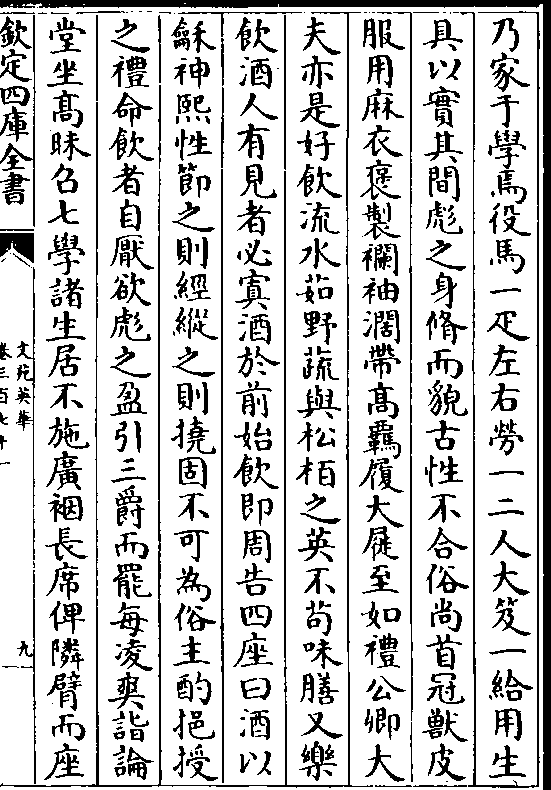 乃家于學焉役馬一疋左右勞一二人大笈一給用生
具以實其間彪之身脩而貌古性不合俗尚首冠獸皮
服用麻衣褒製襴袖濶帶髙覊履大屣至如禮公卿大
夫亦是好飲流水茹野蔬與松栢之英不苟味膳又樂
飲酒人有見者必寘酒於前始飲即周告四座曰酒以
龢神熙性節之則經縱之則撓固不可為俗主酌挹授
之禮命飲者自厭欲彪之盈引三爵而罷每凌爽詣論
堂坐髙昧召七學諸生居不施廣裀長席俾隣臂而座
欽定四庫全書
文苑英華
卷三百七十一
九